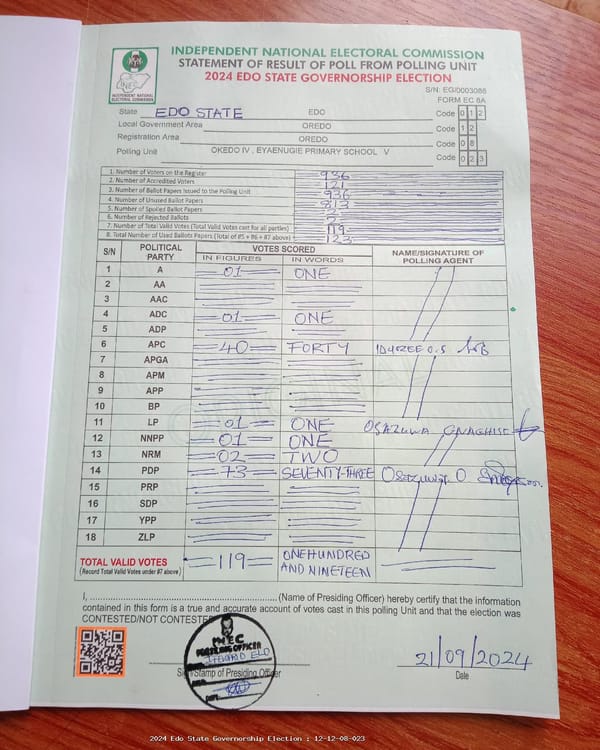 INDEPENDENT NATIONAL ELECTORAL COMMISSION
STATEMENT OF RESULT OF POLL FROM POLLING UNIT
2024 EDO STATE GOVERNORSHIP ELECTION
INEC
INDEPENDENT NATIONAL ELECTORAL COMMISSION
S/N: EG/0003088
FORM EC 8A
State EDO STATE EDO Code 0 1 2
Local Government Area OREDO Code 1 2
Registration Area OREDO Code 0 8
Polling Unit OKEDO IV , EYAENUGIE PRIMARY SCHOOL V Code 0 2 3
1. Number of Voters on the Register 936
2. Number of Accredited Voters 121
3. Number of Ballot Papers Issued to the Polling Unit 936
4. Number of Unused Ballot Papers 813
5. Number of Spoiled Ballot Papers 2
6. Number of Rejected Ballots 2
7. Number of Total Valid Votes (Total Valid Votes cast for all parties) 119
8. Total Number of Used Ballots Papers (Total of #5 + #6 + #7 above) 123
S/N POLITICAL PARTY VOTES SCORED NAME/SIGNATURE OF POLLING AGENT
IN FIGURES IN WORDS
1 A 01 ONE
2 AA
3 AAC
4 ADC 01 ONE
5 ADP
6 APC 40 FORTY
7 APGA
8 APM
9 APP
10 BP
11 LP 01 ONE OSAZUWA
12 NNPP 01 ONE
13 NRM 02 TWO
14 PDP 73 SEVENTY-THREE Osazuwa O
15 PRP
16 SDP
17 YPP
18 ZLP
TOTAL VALID VOTES 119 ONE HUNDRED AND NINETEEN
(Record Total Valid Votes under #7 above)
I, (Name of Presiding Officer) hereby certify that the information
contained in this form is a true and accurate account of votes cast in this polling Unit and that the election was
CONTESTED/NOT CONTESTED
INEC
PRESIDING OFFICER
EDO
Sign/Stamp of Presiding Officer
21/09/2024
Date
2024 Edo State Governorship Election : 12-12-08-023